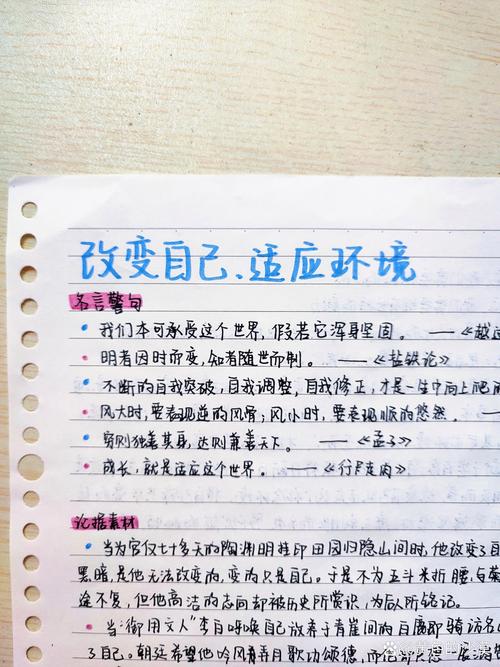 改变自己、适应环境
名言警句
• 我们本可承受这个世界，假若它浑身坚固。 ——《越过
• 明者因时而变，知者随世而制。 ——《盐铁论》
• 不断的自我突破，自我调整，自我修正，才是一生中向上爬
• 风大时，要表现逆的风骨；风小时，要表现顺的悠然。 —
• 穷则独善其身，达则兼善天下。 ——《孟子》
• 成长，就是适应这个世界。 ——《行尸走肉》
论据素材
• 当为官仅七十多天的陶渊明挂印田园归隐山间时，他改变了自
黑暗，是他无法改变的，变的只是自己。于是不为五斗米折腰，与菊
途不复，但他高洁的志向却被历史所赏识，为后人所铭记。
• 当"御用文人"李白呼唤自己放养于青崖间的白鹿即骑访名
了自己。朝廷希望他吟风弄月歌功颂德，而